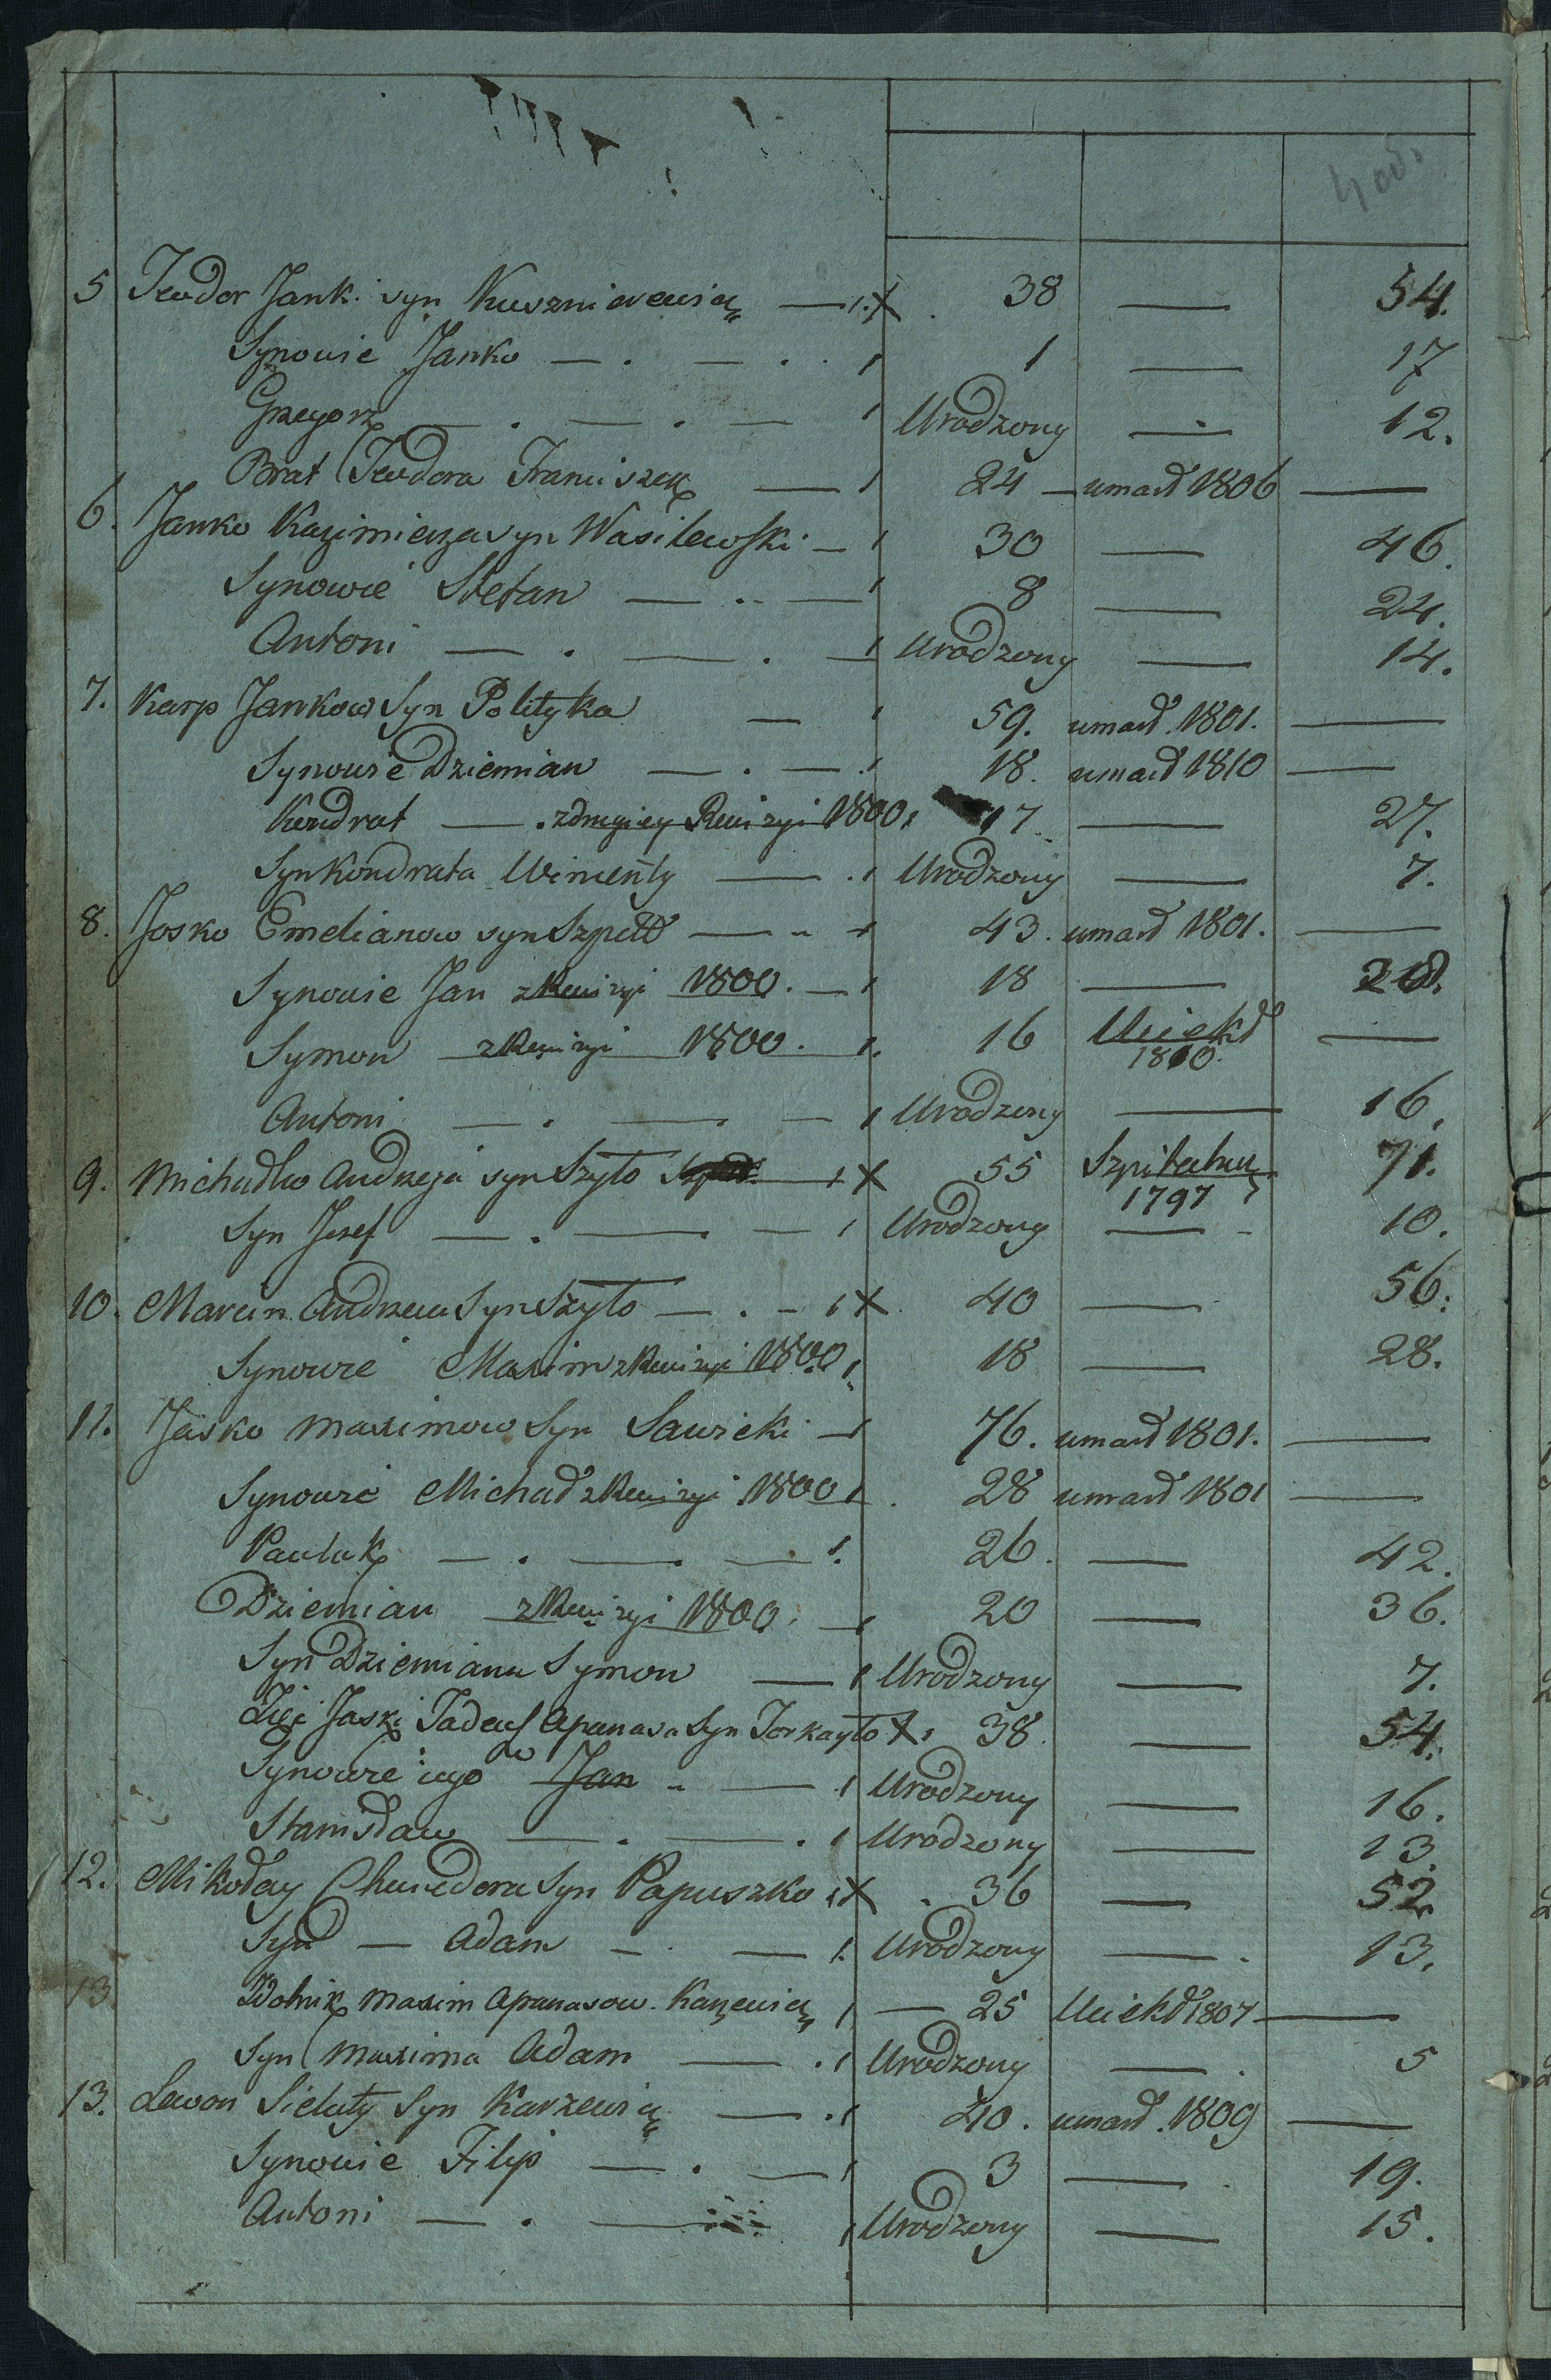 5 Teodor Janki syn Kusznierewicz — 1. X 38 — 54.
Synowie Janko — . — . . 1 1 — 17
Grzegorz — . — . — 1 Urodzony — 12.
Brat Teodora Franciszek — 1 24 — umarł 1806 —
6. Janko Kazimierza syn Wasilewski — 1 30 — 46.
Synowie Stefan — .. — 1 8 — 24.
Antoni — . — . — 1 Urodzony — 14.
7. Karp Jankow Syn Polityka — 1 59. umarł. 1801. —
Synowie Dziemian — . — . 1 18. umarł 1810 —
Kondrat — . z drugiey Rewizyi 1800 1 17. — 27.
Syn Kondrata Wincenty — . 1 Urodzony — 7.
8. Josko Emelianow syn Szpett — .. 1 43. umarł 1801. —
Synowie Jan z Rewizyi 1800. — 1 18 —
Symon z Rewizyi 1800. 1. 16 Uciekł —
1810.
Antoni — . — . — 1 Urodzony — 16.
9. Michałko Andrzeja syn Szyło 1 X 55 71.
1797
Syn Jozef — . — . — 1 Urodzony — 10.
10. Marcin Andrzeia Syn Szyło — . — 1 X 40 — 56.
Synowie Maxim z Rewizyi 1800 1. 18 — 28.
11. Jaśko Maximow Syn Sawicki — 1 76. umarł 1801. —
Synowie Michał z Rewizyi 1800 1. 28 umarł 1801 —
Pawluk — . — . — 1. 26. — 42.
Dziemian z Rewizyi 1800. — 1 20 — 36.
Syn Dziemiana Symon — 1 Urodzony — 7.
Zięć Jaski Tadeusz Apanasa Syn Jorkayto X 1 38. — 54.
Synowie iego Jan .. — 1 Urodzony — 16.
Stanisław — . — . 1 Urodzony — 13.
12. Mikołay Chwedora Syn Papuszko 1 X . 36 — 52.
Syn — Adam — . — 1. Urodzony — . 13.
13 Wolnik Maxim Apanasow. 1 — 25 Uciekł 1807 —
Syn Maxima Adam — . 1 Urodzony — . 5
13. Lewon Sieluty Syn Karzewicz — . 1 40. umarł. 1809 —
Synowie Filip — . — 1 3 — . 19.
Antoni — . — 1 Urodzony — 15.